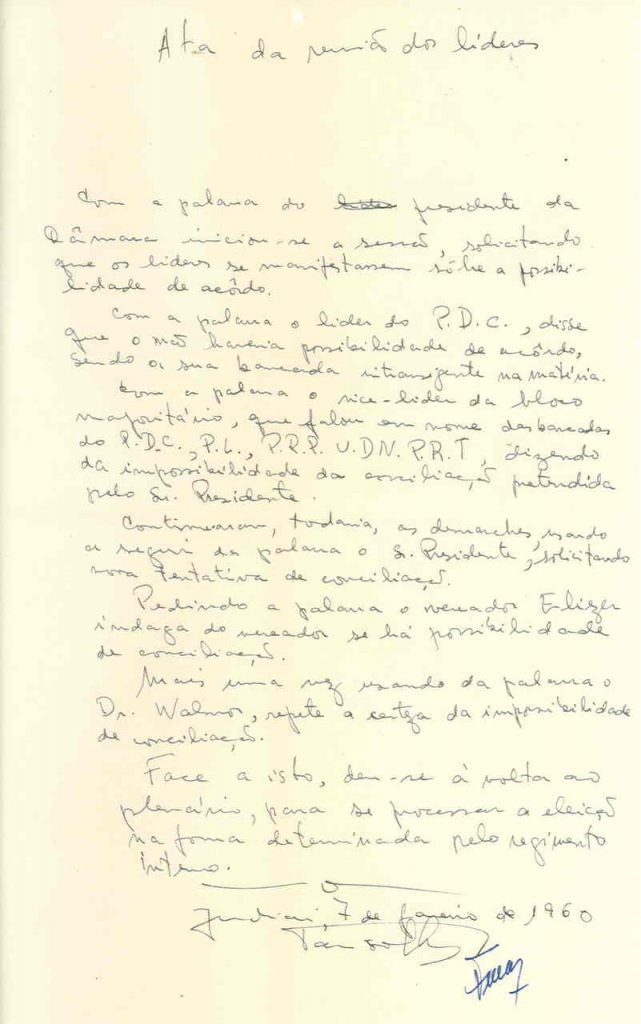 Ata da reunião dos líderes
Com a palavra do presidente da
Câmara iniciou-se a sessão, solicitando
que os líderes se manifestassem sôbre a possibi-
lidade de acôrdo.
Com a palavra o líder do P.D.C., disse
que o não haveria possibilidade de acôrdo,
sendo a sua bancada intransigente na matéria.
Com a palavra o vice-líder da bloco
majoritário, que falou em nome das bancadas
do P.D.C., P.L., P.R.P. U.D.N. P.R.T, dizendo
da impossibilidade da conciliação pretendida
pelo Sr. Presidente.
Continuaram, todavia, as demarches, usando
a seguir da palavra o Sr. Presidente, solicitando
nova tentativa de conciliação.
Pedindo a palavra o vereador Eliezer
indaga do vereador se há possibilidade
de conciliação.
Mais uma vez usando da palavra o
Dr. Walmor, repete a certeza da impossibilidade
de conciliação.
Face a isto, deu-se à volta ao
plenário, para se processar a eleição
na forma determinada pelo regimento
interno.
Jundiaí, 7 de janeiro de 1960